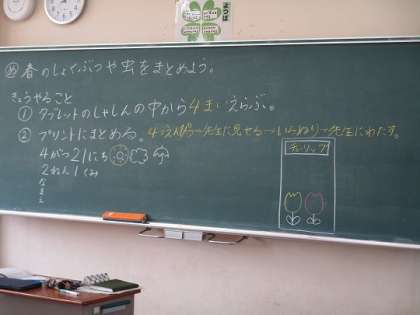 ㋱春のしょくぶつや虫をまとめよう。
きょうやること
① タブレットのしゃしんの中から4まいえらぶ。
② プリントにまとめる。4つえらぶ→先生に見せる→いろぬり→先生にわたす。
4がつ21にち
2ねん1くみ
なまえ
チューリップ